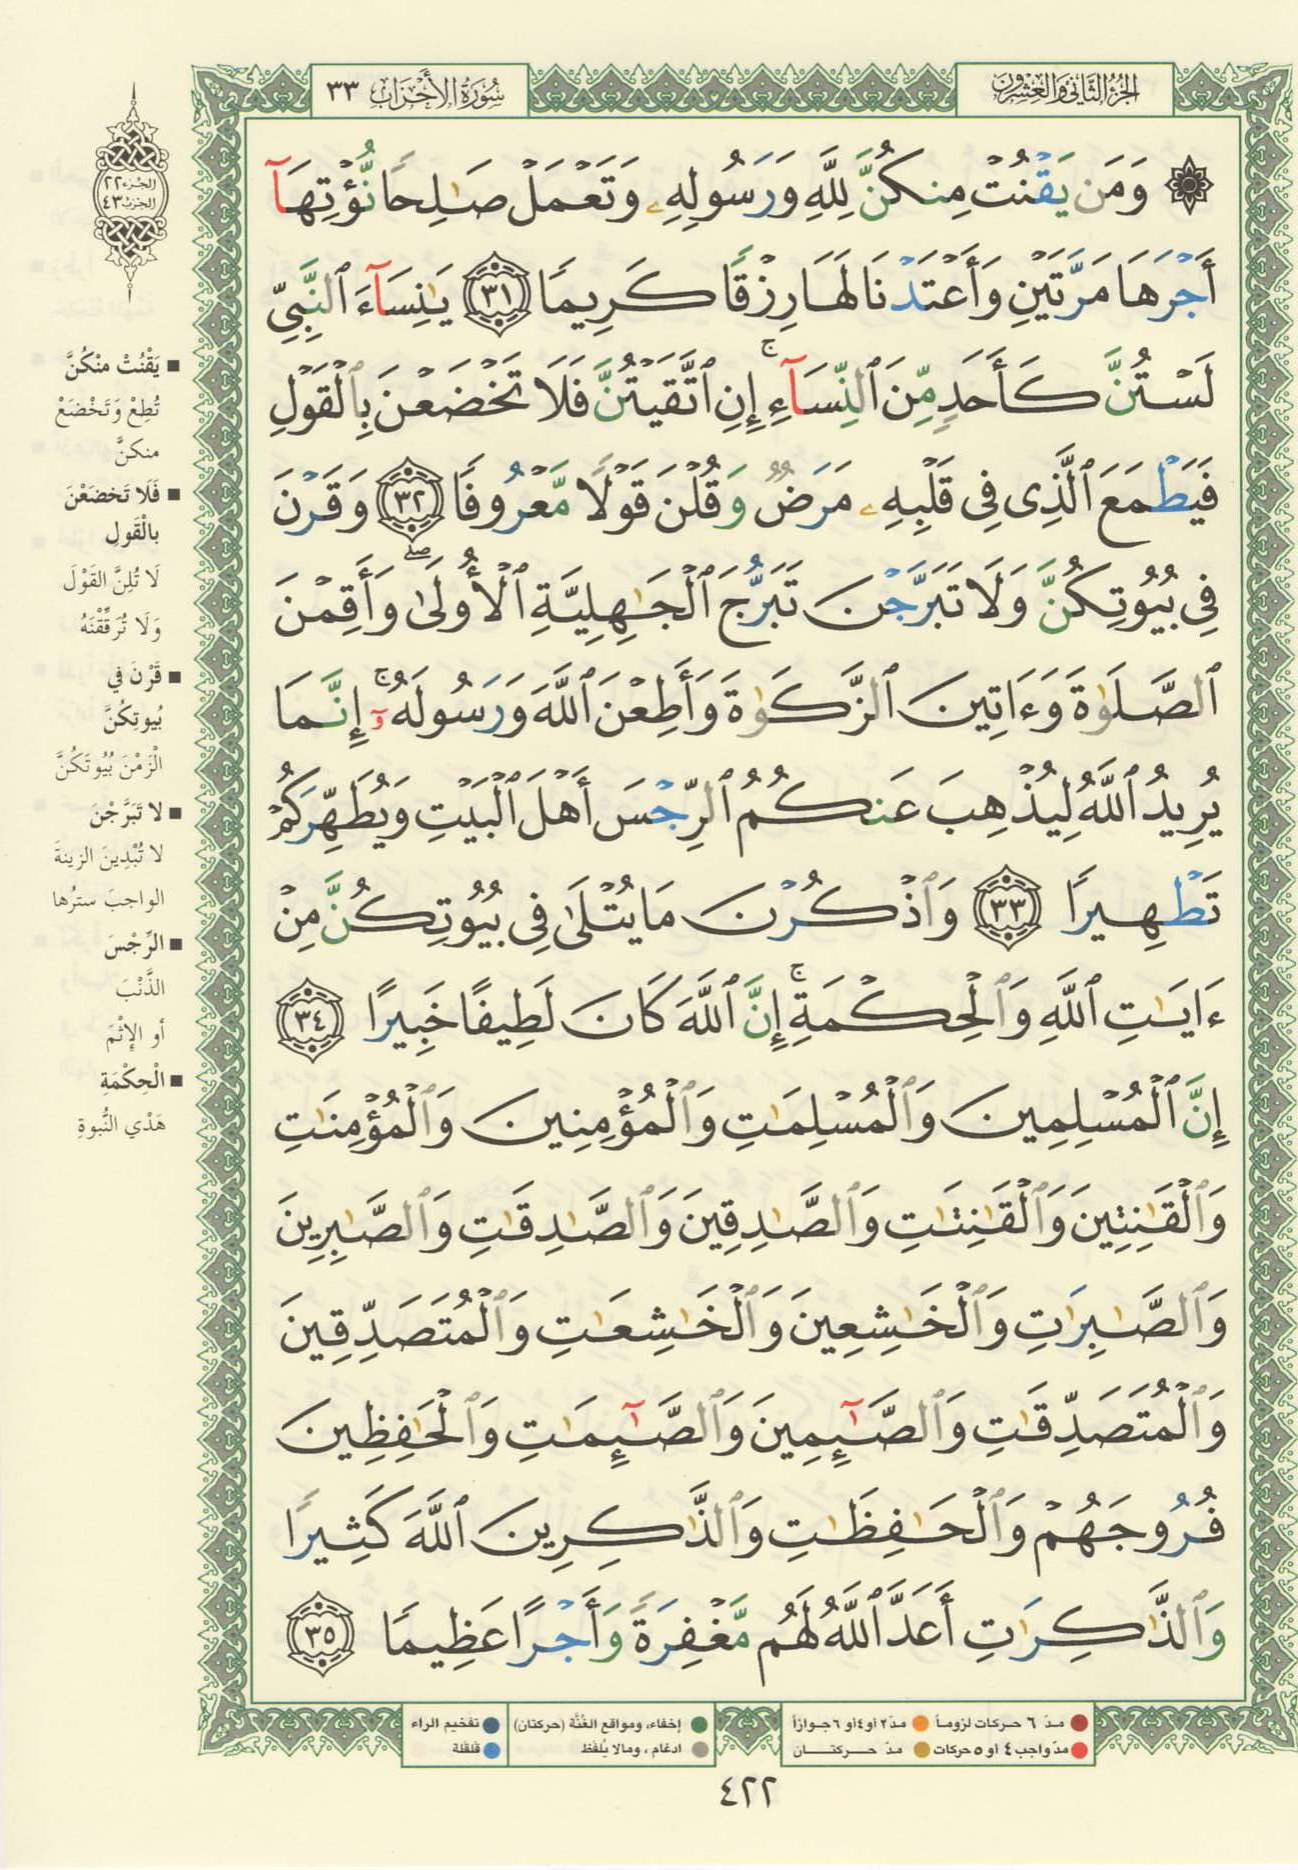 الجزء الثاني والعشرون
سورة الأحزاب ٣٣
الجزء ٢٢
الحزب ٤٣
۞ وَمَن يَقْنُتْ مِنكُنَّ لِلَّهِ وَرَسُولِهِۦ وَتَعْمَلْ صَـٰلِحًا نُّؤْتِهَآ
أَجْرَهَا مَرَّتَيْنِ وَأَعْتَدْنَا لَهَا رِزْقًا كَرِيمًا ٣١ يَـٰنِسَآءَ ٱلنَّبِيِّ
لَسْتُنَّ كَأَحَدٍ مِّنَ ٱلنِّسَآءِ ۚ إِنِ ٱتَّقَيْتُنَّ فَلَا تَخْضَعْنَ بِٱلْقَوْلِ
فَيَطْمَعَ ٱلَّذِى فِى قَلْبِهِۦ مَرَضٌ وَقُلْنَ قَوْلًا مَّعْرُوفًا ٣٢ وَقَرْنَ
فِى بُيُوتِكُنَّ وَلَا تَبَرَّجْنَ تَبَرُّجَ ٱلْجَـٰهِلِيَّةِ ٱلْأُولَىٰ ۖ وَأَقِمْنَ
ٱلصَّلَوٰةَ وَءَاتِينَ ٱلزَّكَوٰةَ وَأَطِعْنَ ٱللَّهَ وَرَسُولَهُۥٓ ۚ إِنَّمَا
يُرِيدُ ٱللَّهُ لِيُذْهِبَ عَنكُمُ ٱلرِّجْسَ أَهْلَ ٱلْبَيْتِ وَيُطَهِّرَكُمْ
تَطْهِيرًا ٣٣ وَٱذْكُرْنَ مَا يُتْلَىٰ فِى بُيُوتِكُنَّ مِنْ
ءَايَـٰتِ ٱللَّهِ وَٱلْحِكْمَةِ ۚ إِنَّ ٱللَّهَ كَانَ لَطِيفًا خَبِيرًا ٣٤
إِنَّ ٱلْمُسْلِمِينَ وَٱلْمُسْلِمَـٰتِ وَٱلْمُؤْمِنِينَ وَٱلْمُؤْمِنَـٰتِ
وَٱلْقَـٰنِتِينَ وَٱلْقَـٰنِتَـٰتِ وَٱلصَّـٰدِقِينَ وَٱلصَّـٰدِقَـٰتِ وَٱلصَّـٰبِرِينَ
وَٱلصَّـٰبِرَٰتِ وَٱلْخَـٰشِعِينَ وَٱلْخَـٰشِعَـٰتِ وَٱلْمُتَصَدِّقِينَ
وَٱلْمُتَصَدِّقَـٰتِ وَٱلصَّـٰٓئِمِينَ وَٱلصَّـٰٓئِمَـٰتِ وَٱلْحَـٰفِظِينَ
فُرُوجَهُمْ وَٱلْحَـٰفِظَـٰتِ وَٱلذَّٰكِرِينَ ٱللَّهَ كَثِيرًا
وَٱلذَّٰكِرَٰتِ أَعَدَّ ٱللَّهُ لَهُم مَّغْفِرَةً وَأَجْرًا عَظِيمًا ٣٥
■ يَقْنُتْ مِنْكُنَّ
تُطِعْ وَتَخْضَعْ
منكنَّ
■ فَلَا تَخضَعْنَ
بالْقَولِ
لَا تُلِنَّ القَوْلَ
وَلَا تُرَقِّقْنَهُ
■ قَرْنَ في
بُيوتِكُنَّ
الْزَمْنَ بُيُوتَكُنَّ
■ لا تَبَرَّجْنَ
لا تُبْدِينَ الزينةَ
الواجبَ سترُها
■ الرِّجْسَ
الذَّنْبَ
أو الإثْمَ
■ الْحِكْمَةِ
هَدْي النُّبوةِ
مدّ ٦ حركات لزوماً
مدّ ٢ أو ٤ أو ٦ جوازاً
مدّ واجب ٤ أو ٥ حركات
مدّ حركتان
إخفاء، ومواقع الغُنَّة (حركتان)
ادغام، ومالا يُلفظ
تفخيم الراء
قلقلة
٤٢٢